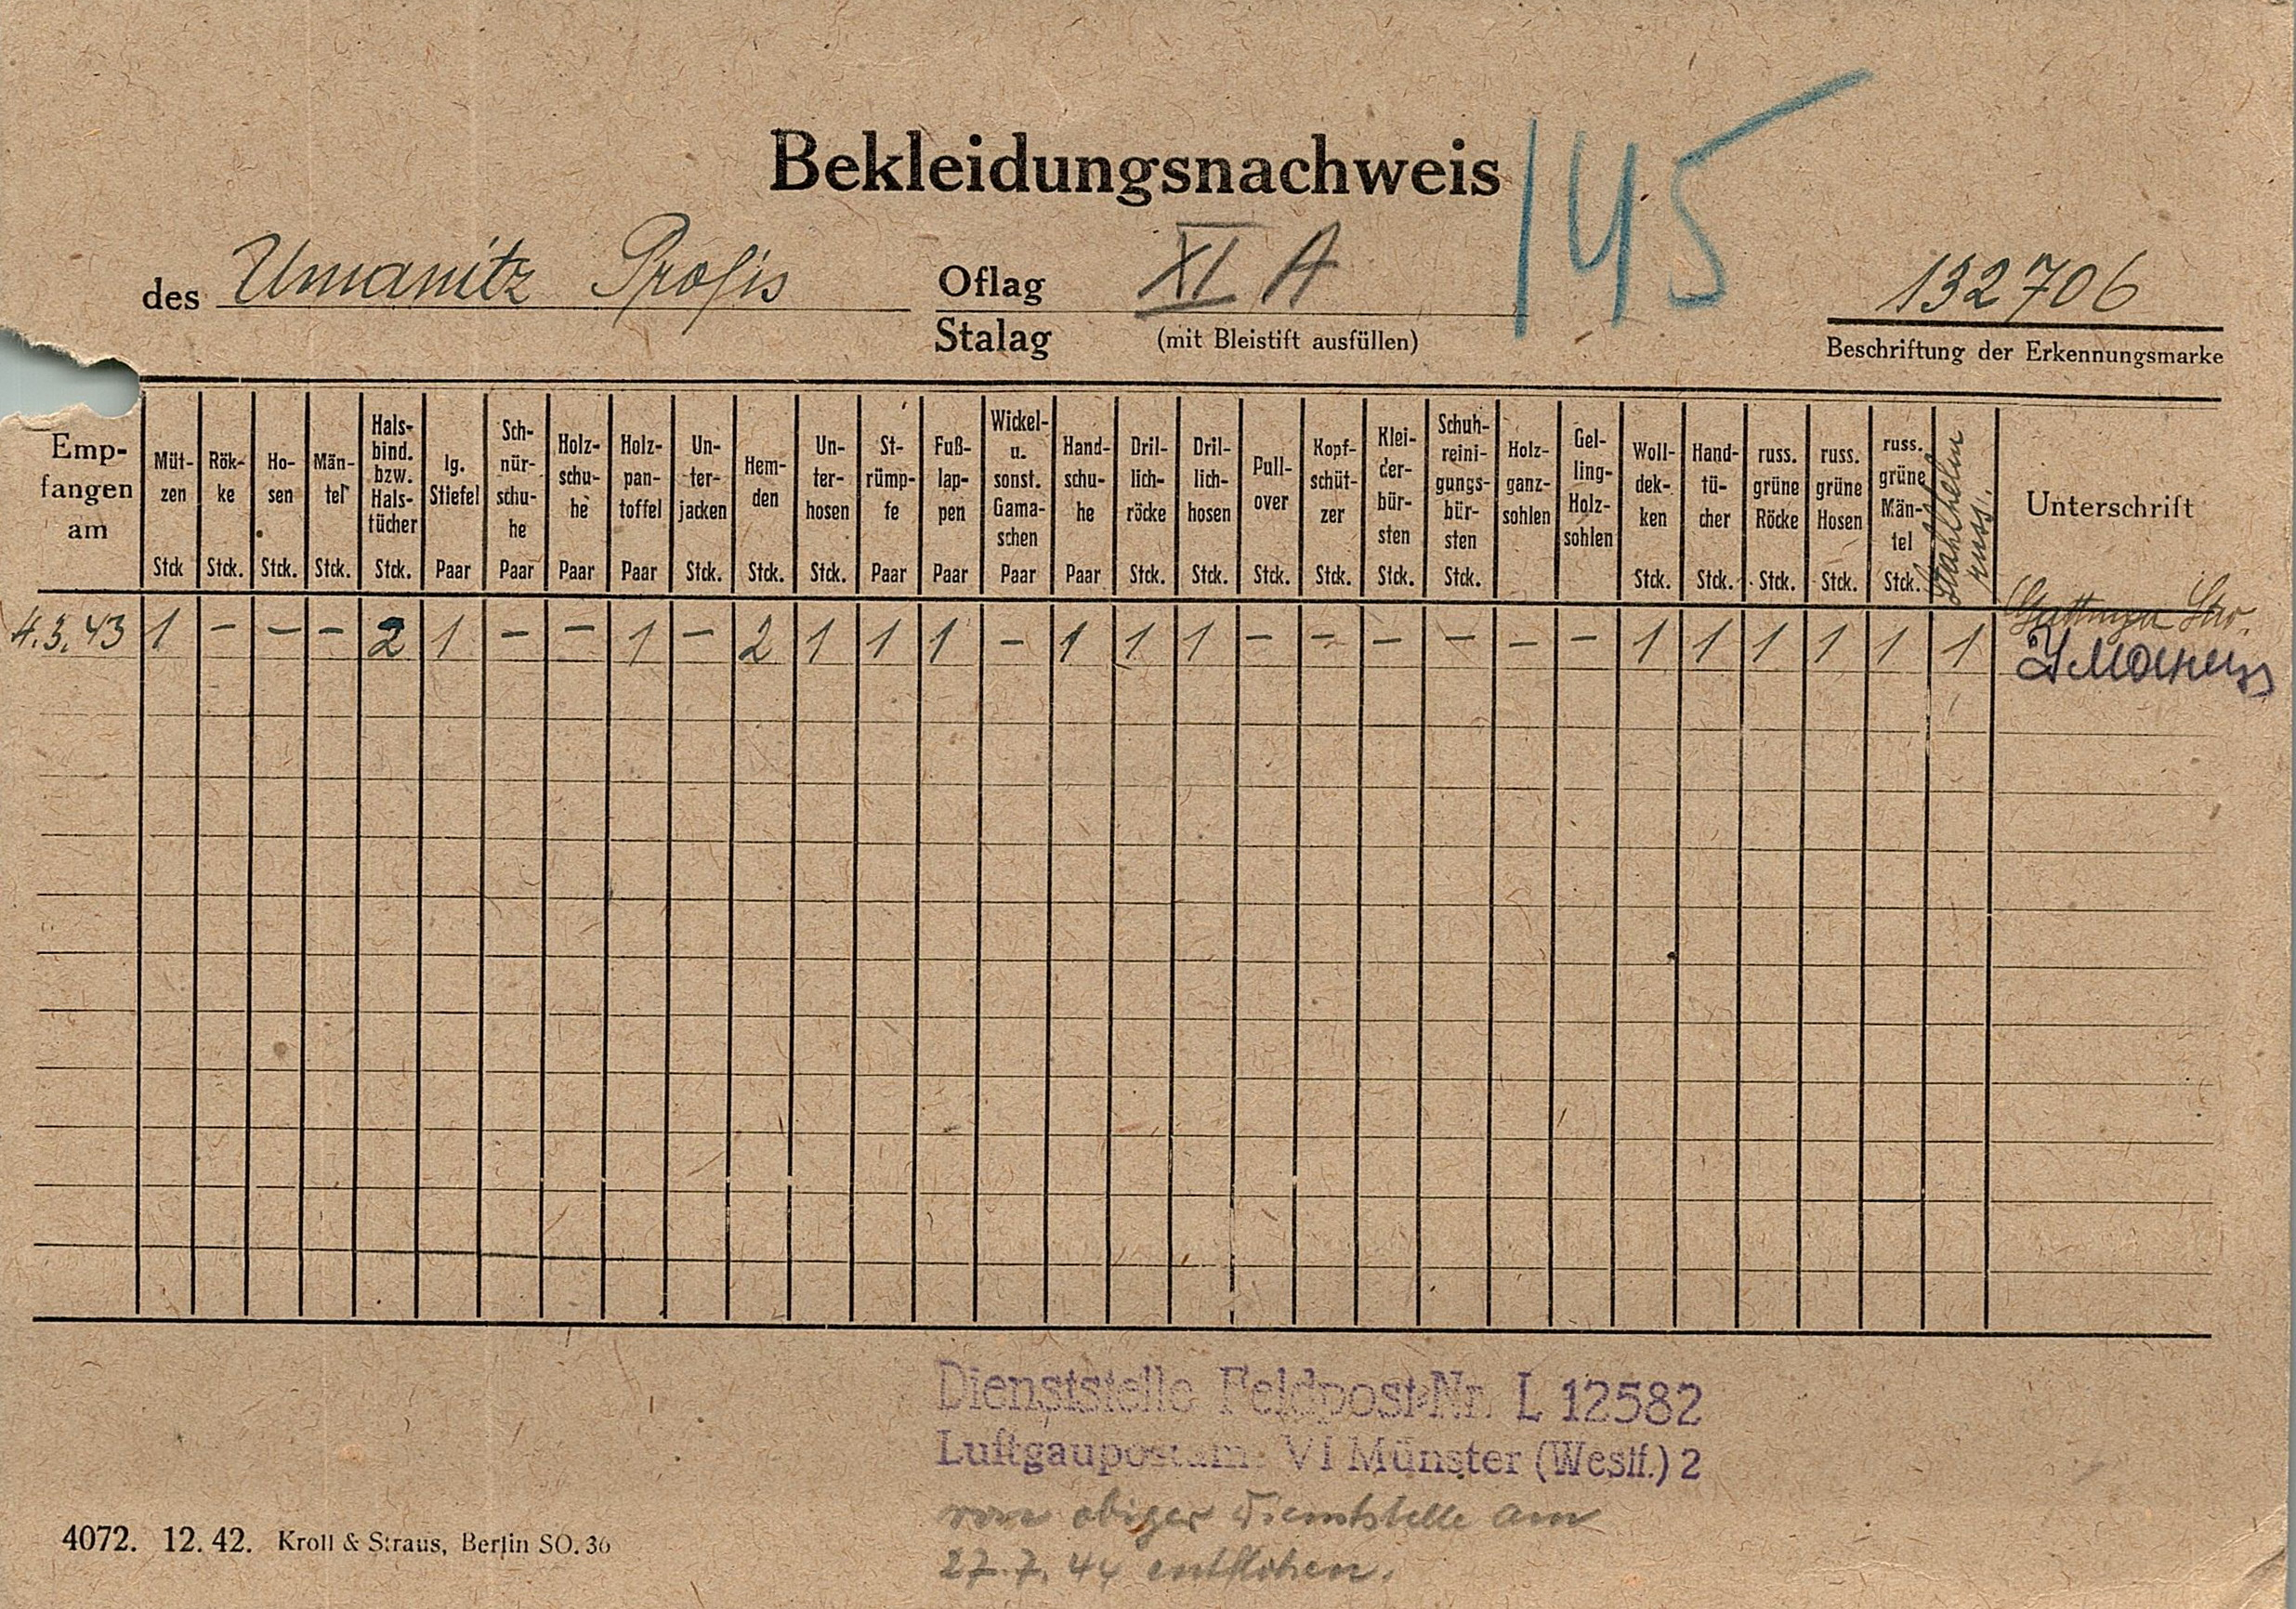 Bekleidungsnachweis
145
des Umanitz Profis Oflag XI A 132706
Stalag (mit Bleistift ausfüllen) Beschriftung der Erkennungsmarke
Emp-fangen am
Müt-zen Stck
Rök-ke Stck.
Ho-sen Stck.
Män-tel Stck.
Hals-bind. bzw. Hals-tücher Stck.
lg. Stiefel Paar
Sch-nür-schu-he Paar
Holz-schu-he Paar
Holz-pan-toffel Paar
Un-ter-jacken Stck.
Hem-den Stck.
Un-ter-hosen Stck.
St-rümp-fe Paar
Fuß-lap-pen Paar
Wickel- u. sonst. Gama-schen Paar
Hand-schu-he Paar
Dril-lich-röcke Stck.
Dril-lich-hosen Stck.
Pull-over Stck.
Kopf-schüt-zer Stck.
Klei-der-bür-sten Stck.
Schuh-reini-gungs-bür-sten Stck.
Holz-ganz-sohlen
Gel-ling-Holz-sohlen
Woll-dek-ken Stck.
Hand-tü-cher Stck.
russ. grüne Röcke Stck.
russ. grüne Hosen Stck.
russ. grüne Män-tel Stck.
Stahlhelm russ.
Unterschrift
4.3.43 1 – – – 2 1 – – 1 – 2 1 1 1 – 1 1 1 – – – – – – 1 1 1 1 1 1
Dienststelle Feldpost-Nr. L 12582
Luftgaupostamt VI Münster (Westf.) 2
von obiger Dienststelle am
27.7.44 entflohen.
4072. 12. 42. Kroll & Straus, Berlin SO. 36